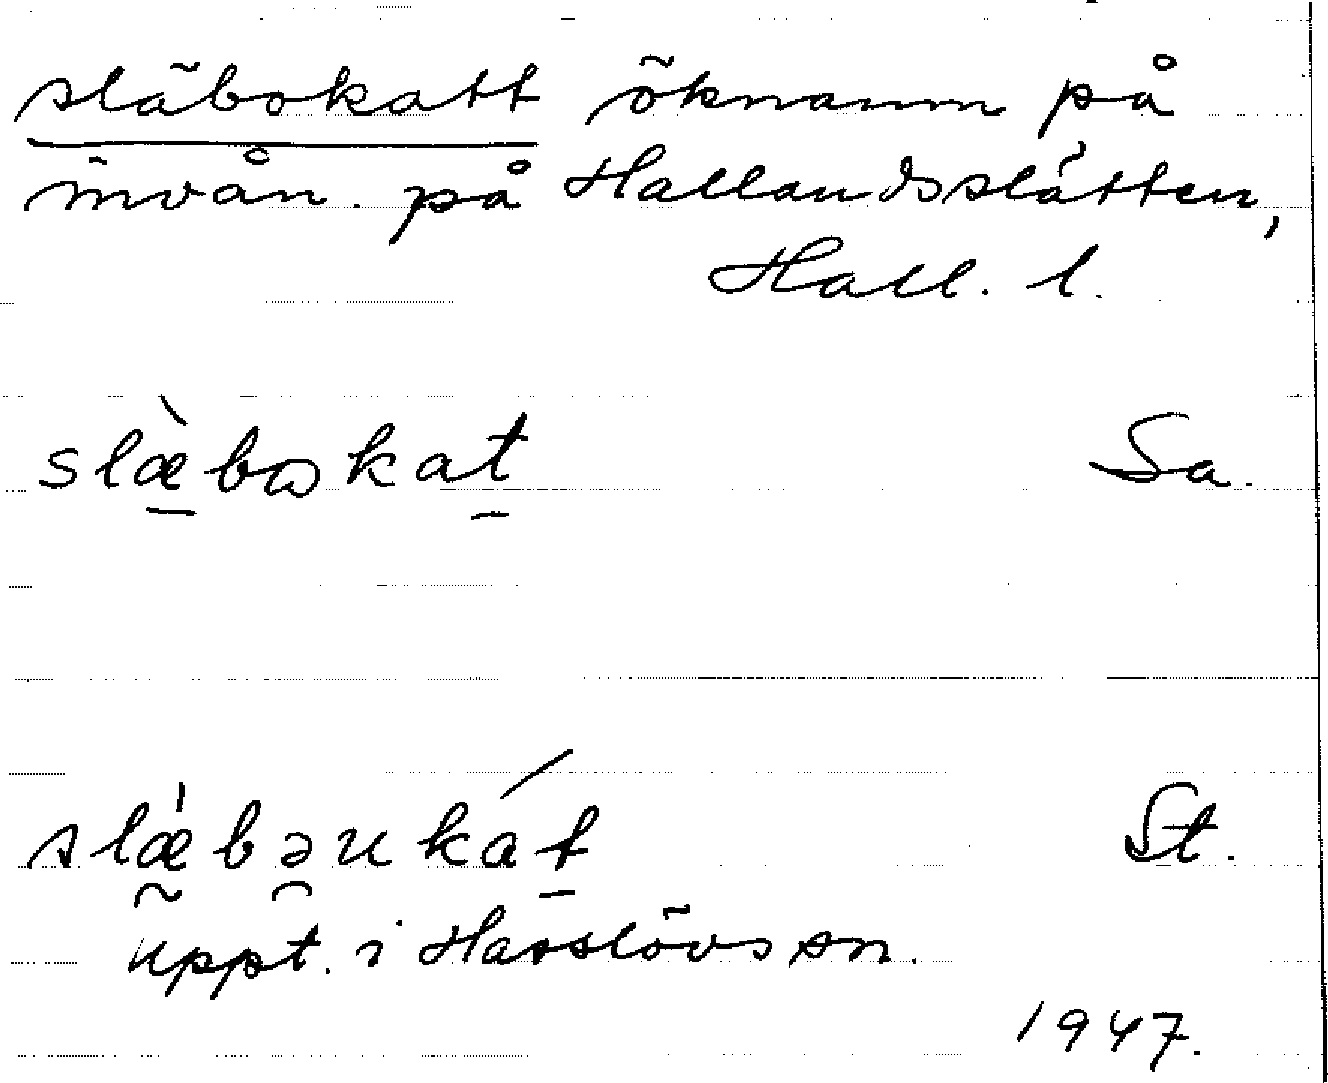 släbokatt öknamn på
invån. på Hallandsslätten,
Hall. l.
slæ̀bokat Sa.
slæ̍bəukát St.
uppt. i Hasslövs sn.
1947.